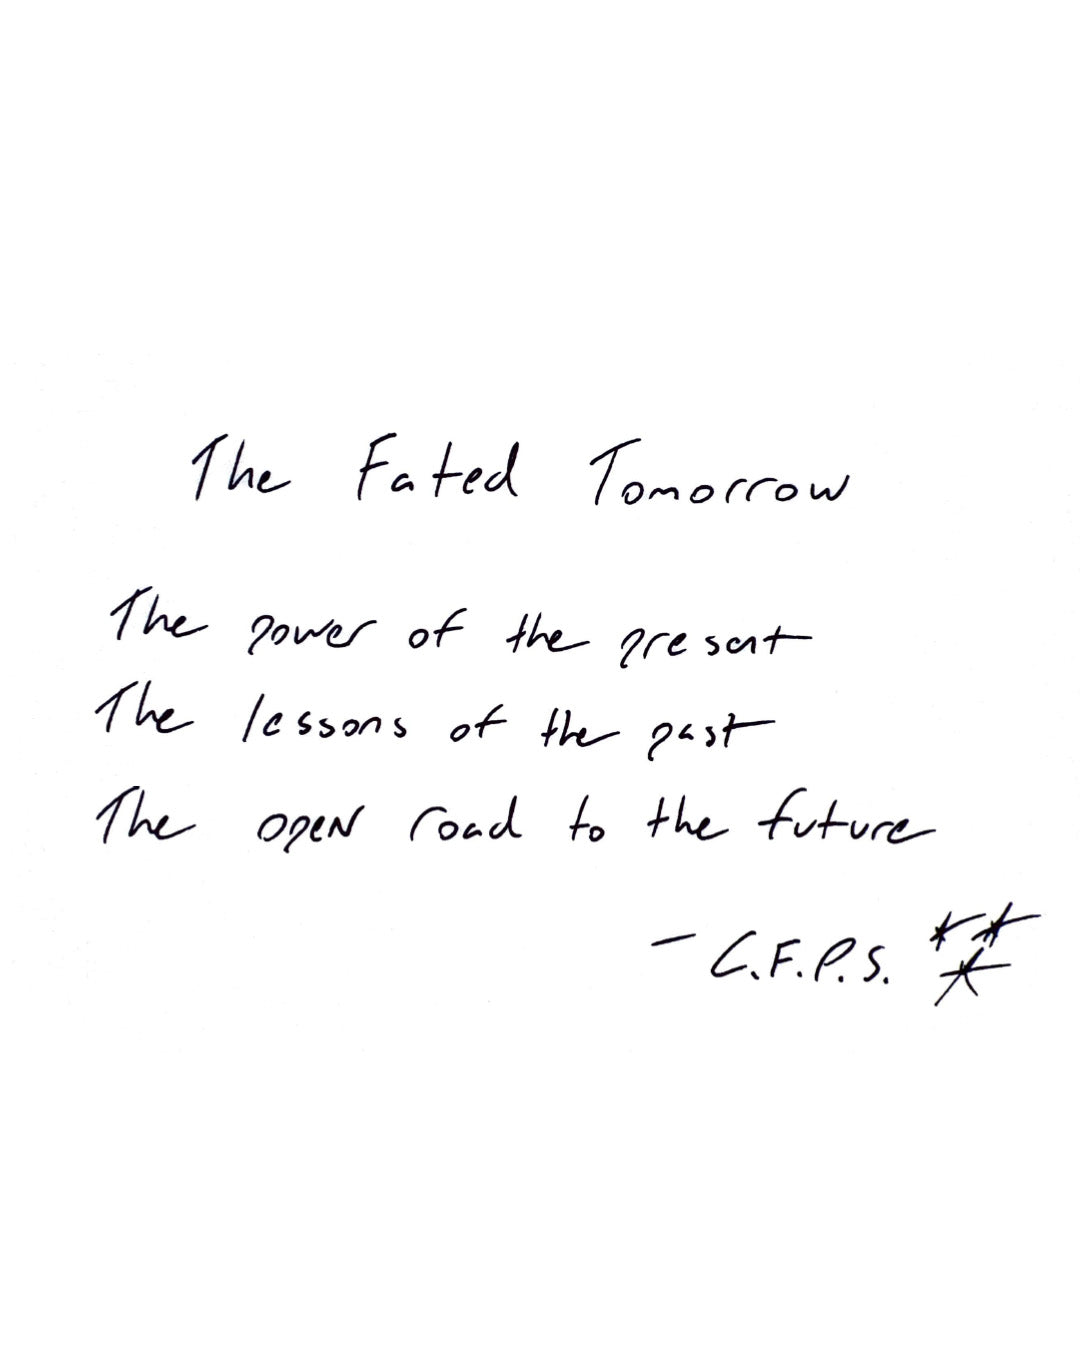 The Fated Tomorrow
The power of the present
The lessons of the past
The open road to the future
- C.F.P.S. ***